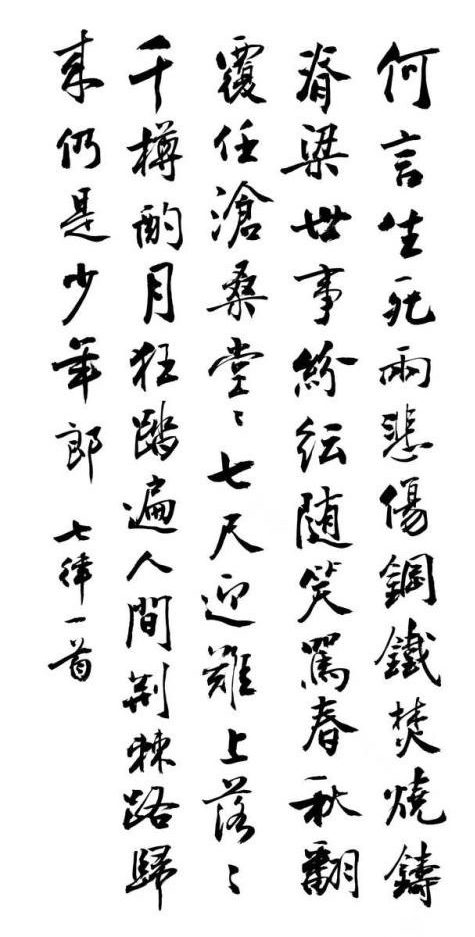 何言生死兩悲傷鋼鐵焚燒鑄
脊梁世事紛紜随笑罵春秋翻
覆任滄桑堂〻七尺迎難上落〻
千樽酌月狂踏遍人間荆棘路歸
来仍是少年郎 七律一首